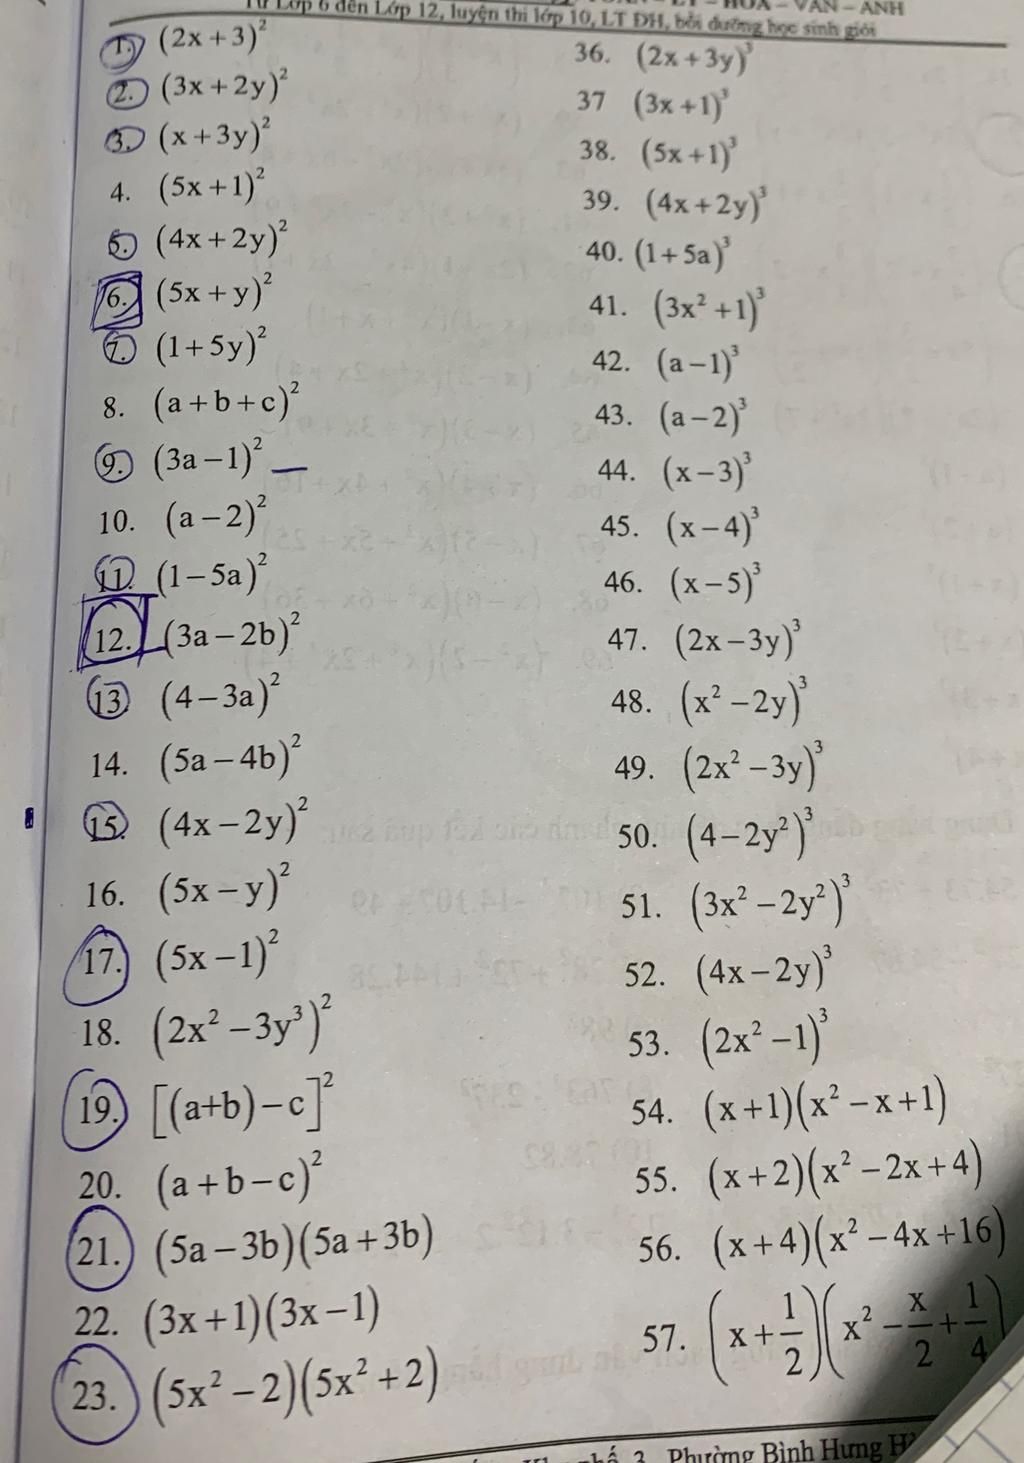 Từ Lớp 6 đến Lớp 12, luyện thi lớp 10, LT ĐH, bồi dưỡng học sinh giỏi
1. (2x+3)²
2. (3x+2y)²
3. (x+3y)²
4. (5x+1)²
5. (4x+2y)²
6. (5x+y)²
7. (1+5y)²
8. (a+b+c)²
9. (3a−1)²
10. (a−2)²
11. (1−5a)²
12. (3a−2b)²
13 (4−3a)²
14. (5a−4b)²
15. (4x−2y)²
16. (5x−y)²
17. (5x−1)²
18. (2x²−3y³)²
19. [(a+b)−c]²
20. (a+b−c)²
21. (5a−3b)(5a+3b)
22. (3x+1)(3x−1)
23. (5x²−2)(5x²+2)
36. (2x+3y)³
37 (3x+1)³
38. (5x+1)³
39. (4x+2y)³
40. (1+5a)³
41. (3x²+1)³
42. (a−1)³
43. (a−2)³
44. (x−3)³
45. (x−4)³
46. (x−5)³
47. (2x−3y)³
48. (x²−2y)³
49. (2x²−3y)³
50. (4−2y²)³
51. (3x²−2y²)³
52. (4x−2y)³
53. (2x²−1)³
54. (x+1)(x²−x+1)
55. (x+2)(x²−2x+4)
56. (x+4)(x²−4x+16)
57. (x+1/2)(x²−x/2+1/4)
3 Phường Bình Hưng